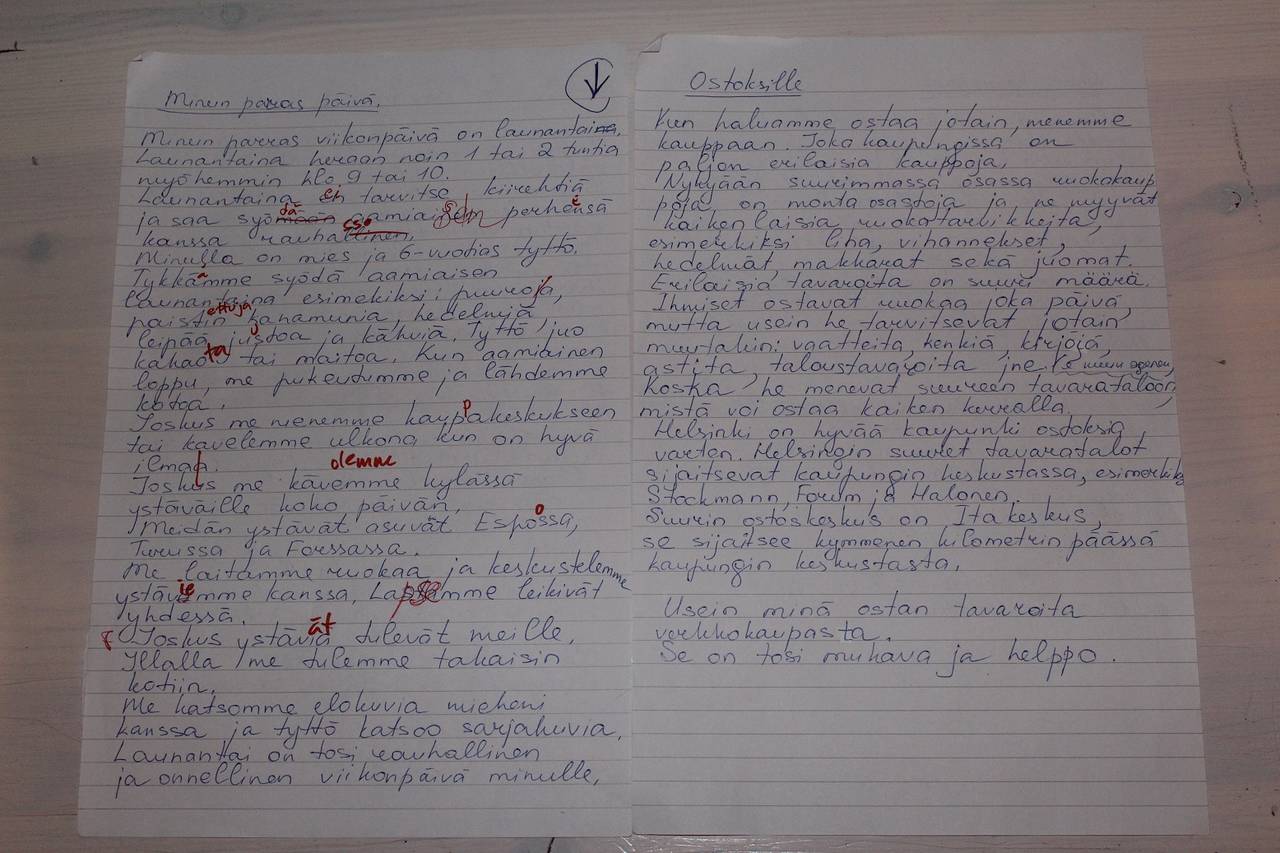 Minun parras päivä.
Minun parras viikonpäivä on launantaina.
Launantaina herään noin 1 tai 2 tuntia
myöhemmin klo 9 tai 10.
Launantaina ei tarvitse kiirehtiä
ja saa syödä aamiaisen perheensä
kanssa
Minulla on mies ja 6-vuotias tyttö.
Tykkäämme syödä aamiaisen
launantaina esimekiksi: puuroja,
paistettuja kanamunia, hedelmiä,
leipää, justoa ja kahvia. Tyttö juo
kakaota tai maitoa. Kun aamiainen
loppu, me pukeudumme ja lähdemme
kotoa.
Joskus me menemme kauppakeskukseen
tai kävelemme ulkona kun on hyvä
ilman.
olemme
Joskus me kävemme kylässä
ystäväille koko päivän.
Meidän ystävät asuvat Espoossa,
Turussa ja Forssassa.
Me laitamme ruokaa ja keskustelemme
ystäviemme kanssa. Lapsemme leikivät
yhdessä.
Joskus ystävät tulevat meille.
Illalla me tulemme takaisin
kotiin.
Me katsomme elokuvia mieheni
kanssa ja tyttö katsoo sarjakuvia.
Launantai on tosi rauhallinen
ja onnellinen viikonpäivä minulle.
Ostoksille
Kun haluamme ostaa jotain, menemme
kauppaan. Joka kaupungissa on
paljon erilaisia kauppoja.
Nykyään suurimmassa osassa ruokakaup
poja on monta osastoja ja ne myyvät
kaikenlaisia ruokatarvikkeita,
esimerkiksi liha, vihannekset,
hedelmät, makkarat sekä juomat.
Erilaisia tavaroita on suuri määrä.
Ihmiset ostavat ruokaa joka päivä
mutta usein he tarvitsevat jotain
muutakin: vaatteita, kenkiä, kirjoja,
astita, taloustavaroita jne
Koska he menevat suureen tavarataloon,
mistä voi ostaa kaiken kerralla.
Helsinki on hyvää kaupunki ostoksia
varten. Helsingin suuret tavaratalot
sijaitsevat kaupungin keskustassa, esimerkiks
Stockmann, Forum ja Halonen.
Suurin ostoskeskus on Itakeskus,
se sijaitsee kymmenen kilometrin päässä
kaupungin keskustasta.
Usein minä ostan tavaroita
verkkokaupasta.
Se on tosi mukava ja helppo.